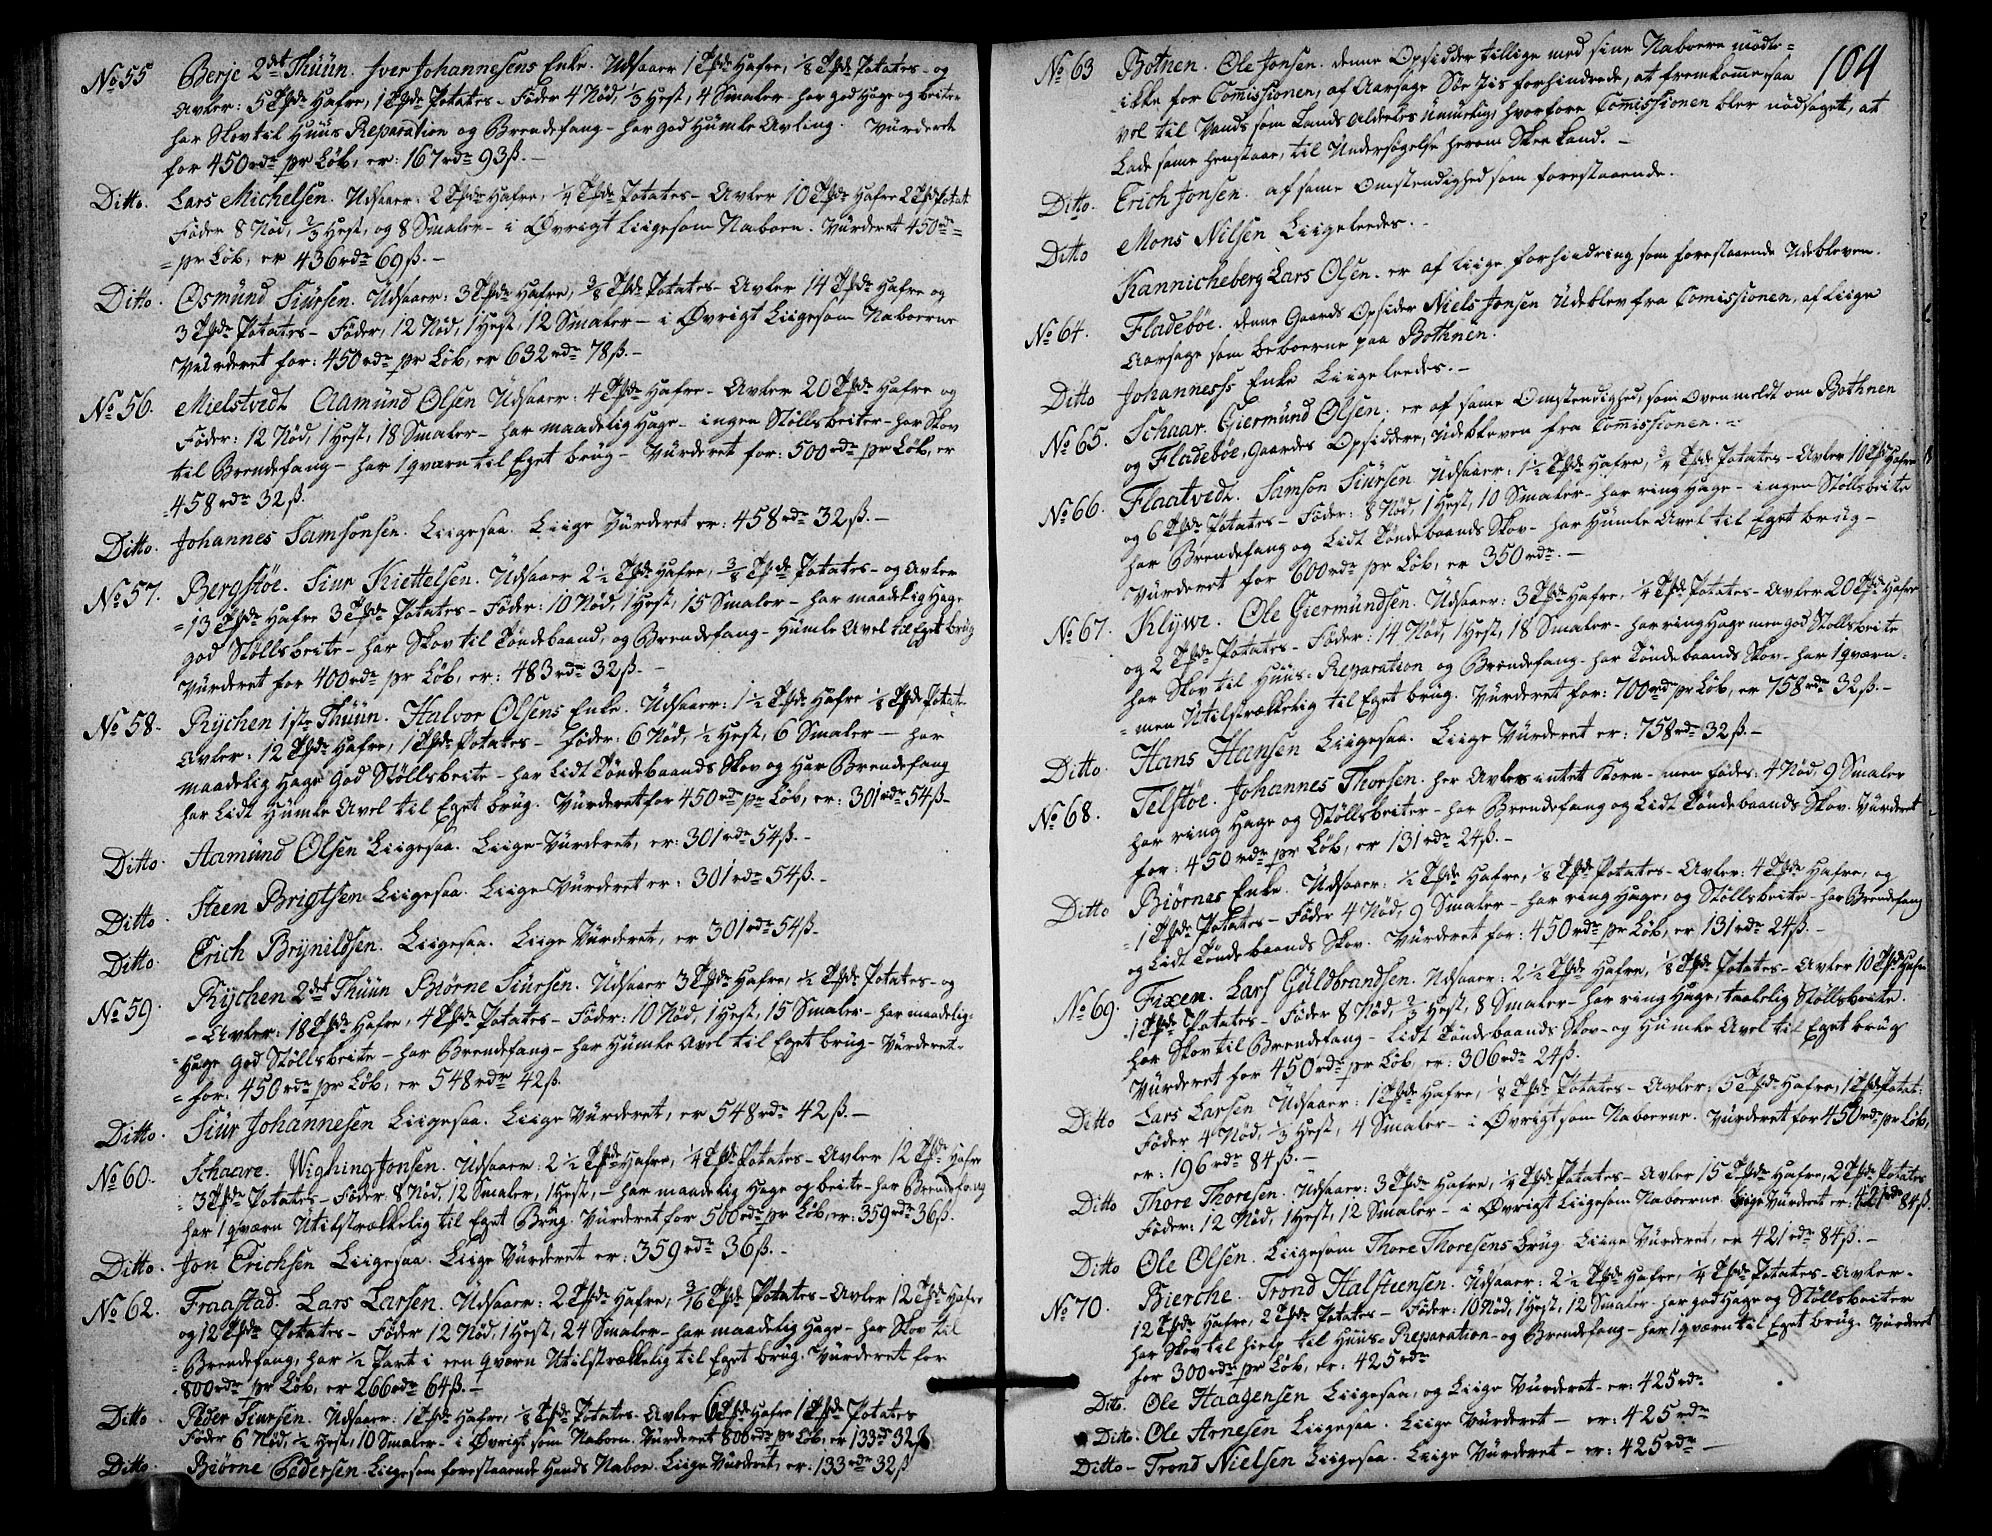 No 55 Berje 2det Thüün. Iver Johannesens Enke. Udsaaer 1 Tde Hafre, 1/8 Tde Potates - og
Avler: 5 Tde Hafre, 1 Tde Potates - Føder 4 Nød, 1/3 Hest, 4 Smaler - har god Hage og beiter
har Skov til Huus Reparation og Brendefang - har god Humle Avling. Vürderet
for 450 rdr pr Løb, er: 167 rdr 93 ß. -
Ditto. Lars Michelsen. Udsaaer: 2 Tde Hafre, 1/4 Tde Potates - Avler 10 Tde Hafre 2 Tde Potat
Føder 8 Nød, 2/3 Hest, og 8 Smaler - i Øvrigt Liigesom Naboen. Vürderet 450 rdr =
= pr Løb, er 436 rdr 69 ß. -
Ditto. Osmünd Siursen. Udsaaer: 3 Tde Hafre, 3/8 Tde Potates - Avler 14 Tde Hafre og
3 Tde Potates - Føder, 12 Nød, 1 Hest, 12 Smaler - i Øvrigt Liigesom Naboerne
Vürderet for: 450 rdr pr Løb, er 632 rdr 78 ß. -
No 56. Mielstvedt. Aamünd Olsen Udsaaer: 4 Tde Hafre - Avler 20 Tde Hafre og
Føder: 12 Nød, 1 Hest, 18 Smaler - har maadelig Hage - ingen Støllsbeiter - har Skov
til Brendefang - har 1 qværn til Eget brüg - Vürderet for: 500 rdr pr Løb, er
458 rdr 32 ß.
Ditto. Johannes Samsonsen. Liigesaa. Liige Vürderet er: 458 rdr 32 ß. -
No 57. Bergstøe. Siur Kiettelsen. Udsaaer 2 1/2 Tde Hafre, 3/8 Tde Potates - og Avler
= 13 Tde Hafre 3 Tde Potates - Føder: 10 Nød, 1 Hest, 15 Smaler - har maadelig Hage
god Støllsbeite - har Skov til Tøndebaand, og Brendefang - Humle Avel til Eget brüg
Vürderet for 400 rdr pr Løb, er: 483 rdr 32 ß. -
No 58. Rychen 1ste Thüün. Halvor Olsens Enke. Udsaaer: 1 1/2 Tde Hafre 1/8 Tde Potat.
Avler: 12 Tde Hafre, 1 Tde Potates - Føder: 6 Nød, 1/2 Hest, 6 Smaler - har
maadelig Hage god Støllsbeite - har Lidt Tøndebaands Skov og har Brendefang
har Lidt Humle Avel til Eget brüg. Vürderet for 450 rdr pr Løb, er: 301 rdr 54 ß -
Ditto. Aamünd Olsen Liigesaa. Liige Vürderet, er: 301 rdr 54 ß. -
Ditto. Steen Brigtsen Liigesaa. Liige Vürderet er: 301 rdr 54 ß. -
Ditto. Erich Brynildsen. Liigesaa. Liige Vürderet, er 301 rdr 54 ß. -
No 59. Rychen 2det Thüün Biørne Siursen. Udsaaer 3 Tde Hafre, 1/2 Tde Potates - og
- Avler: 18 Tde Hafre, 4 Tde Potates - Føder: 10 Nød, 1 Hest, 15 Smaler - har maadelig =
= Hage god Støllsbeite - har Brendefang - har Humle Avel til Eget brüg - Vürderet -
= for: 450 rdr pr Løb, er 548 rdr 42 ß.
Ditto. Siur Johannesen Liigesaa. Liige Vürderet, er 548 rdr 42 ß. -
No 60. Schaare. Wighing Jonsen. Udsaaer: 2 1/2 Tde Hafre, 1/4 Tde Potates - Avler 12 Tde Hafre
3 Tde Potates - Føder 8 Nød, 12 Smaler, 1 Hest, - har maadelig Hage og beite - har Brendefang
har 1 qværn Utilstrækkelig til Eget Brüg. Vürderet for 500 rdr pr Løb, er: 359 rdr 36 ß.
Ditto. Jon Erichsen Liigesaa. Liige Vürderet er: 359 rdr 36 ß. -
No 62. Fraastad. Lars Larsen. Udsaaer: 2 Tde Hafre, 3/16 Tde Potates - Avler 12 Tde Hafre
og 12 Tde Potates - Føder 12 Nød, 1 Hest, 24 Smaler - har maadelig Hage - har Skov til
= Brendefang, har 1/2 Part i een qværn Utilstrækkelig til Eget brüg. Vürderet for
800 rdr pr Løb, er 266 rdr 64 ß. -
Ditto. Peder Siursen. Udsaaer: 1 Tde Hafre, 1/8 Tde Potates - Avler 6 Tde Hafre 1 Tde Potates
Føder 6 Nød, 1/2 Hest, 10 Smaler - i Øvrigt som Naboen. Vürderet 800 rdr pr Løb, er 133 rdr 32 ß
Ditto. Biørne Pedersen. Liigesom forestaaende hands Nabo. Liige Vürderet, er: 133 rdr 32 ß
104
No 63 Botnen. Ole Jonsen. denne Opsidder tillige med sine Naboere mødte =
ikke for Comissionen, af Aarsage Søe Iis forhinderede, at fremkomme saa
vel til Vands som Lands Aldeles Umuelig, hvorfore Comissionen blev nødsaget, at
Lade same henstaae, til Undersøgelse herom Skee kand. -
Ditto. Erich Jonsen. af same Omstendighed som forestaaende.
Ditto Mons Nilsen Liigeleedes. -
Kannicheberg Lars Olsen. er af liige forhindring som forestaaende Udebleven.
No 64. Fladebøe. denne Gaards Opsider Niels Jonsen Udeblev fra Comissionen, af Liige
Aarsage som beboerne paa Bothnen.
Ditto Johanness Enke Liigeleedes. -
No 65. Schaar. Giermünd Olsen. er af same Omstendighed, som Ovenmeldt om Bothnen
og Fladebøe, Gaardes Opsiddere, Udebleven fra Comissionen. -
No 66. Flaatvedt. Samson Siursen. Udsaaer: 1 1/2 Tde Hafre, 3/4 Tde Potates - Avler 10 Tde Hafre
og 6 Tde Potates - Føder: 8 Nød, 1 Hest, 10 Smaler - har ring Hage - ingen Støllsbeite
har Brendefang og Lidt Tøndebaands Skov - har Humle Avel til Eget brüg -
Vürderet for 600 rdr pr Løb, er 350 rdr. -
No 67. Klÿwe. Ole Giermündsen. Udsaaer: 3 Tde Hafre, 1/4 Tde Potates - Avler 20 Tde Hafre
og 2 Tde Potates - Føder: 14 Nød, 1 Hest, 18 Smaler - har ring Hage men god Støllsbeite
har Skov til Huus-Reparation og Brendefang - har Tøndebaands Skov - har 1 qværn =
= men Utilstrækkelig til Eget brüg. Vürderet for: 700 rdr pr Løb, er 758 rdr 32 ß. -
Ditto. Hans Hansen Liigesaa. Liige Vürderet er: 758 rdr 32 ß. -
No 68. Telstøe. Johannes Thorsen. her Avles intet Korn - men Føder: 4 Nød, 9 Smaler
har ring Hage og Støllsbeiter - har Brendefang og Lidt Tøndebaands Skov. Vürderet
for: 450 rdr pr Løb, er 131 rdr 24 ß. -
Ditto Biørnes Enke. Udsaaer: 1/2 Tde Hafre, 1/8 Tde Potates - Avler: 4 Tde Hafre, og
= 1 Tde Potates - Føder 4 Nød, 9 Smaler - har ring Hage, og Støllsbeite - har Brendefang
og Lidt Tøndebaands Skov. Vürderet for: 450 rdr pr Løb, er 131 rdr 24 ß. -
No 69. Fixen. Lars Güldbrandsen. Udsaaer: 2 1/2 Tde Hafre, 1/8 Tde Potates - Avler 10 Tde Hafre
1 Tde Potates - Føder 8 Nød, 2/3 Hest, 8 Smaler - har ring Hage, taalelig Støllsbeite.
har Skov til Brendefang - Lidt Tøndebaands Skov - og Humle Avel til Eget brüg
Vürderet for 450 rdr pr Løb, er: 306 rdr 24 ß.
Ditto Lars Larsen Udsaaer: 1 Tde Hafre, 1/8 Tde Potates - Avler: 5 Tde Hafre, 1 Tde Potat:
Føder 4 Nød, 1/3 Hest, 4 Smaler - i Øvrigt som Naboerne. Vürderet for 450 rdr pr Løb,
er: 196 rdr 84 ß. -
Ditto Thore Thoresen. Udsaaer: 3 Tde Hafre, 1/4 Tde Potates - Avler 15 Tde Hafre, 2 Tde Potates
Føder: 12 Nød, 1 Hest, 12 Smaler - i Øvrigt Liigesom Naboerne. Liige Vürderet er: 421 rdr 84 ß.
Ditto Ole Olsen. Liigesom Thore Thoresens brüg. Liige Vürderet, er 421 rdr 84 ß. -
No 70. Bierche. Trond Halsteensen. Udsaaer: 2 1/2 Tde Hafre, 1/4 Tde Potates - Avler -
12 Tde Hafre, 2 Tde Potates - Føder: 10 Nød, 1 Hest, 12 Smaler - har god Hage og Støllsbeiter
har Skov til hielp til Huus-Reparation - og Brendefang - har 1 qværn til Eget brüg. Vürderet
for 300 rdr pr Løb, er: 425 rdr
Ditto. Ole Haagensen Liigesaa, og Liige Vürderet - er: 425 rdr
Ditto. Ole Arnesen Liigesaa. Liige Vürderet - er: 425 rdr -
Ditto - Trond Nielsen Liigesaa. Liige Vürderet - er: 425 rdr -